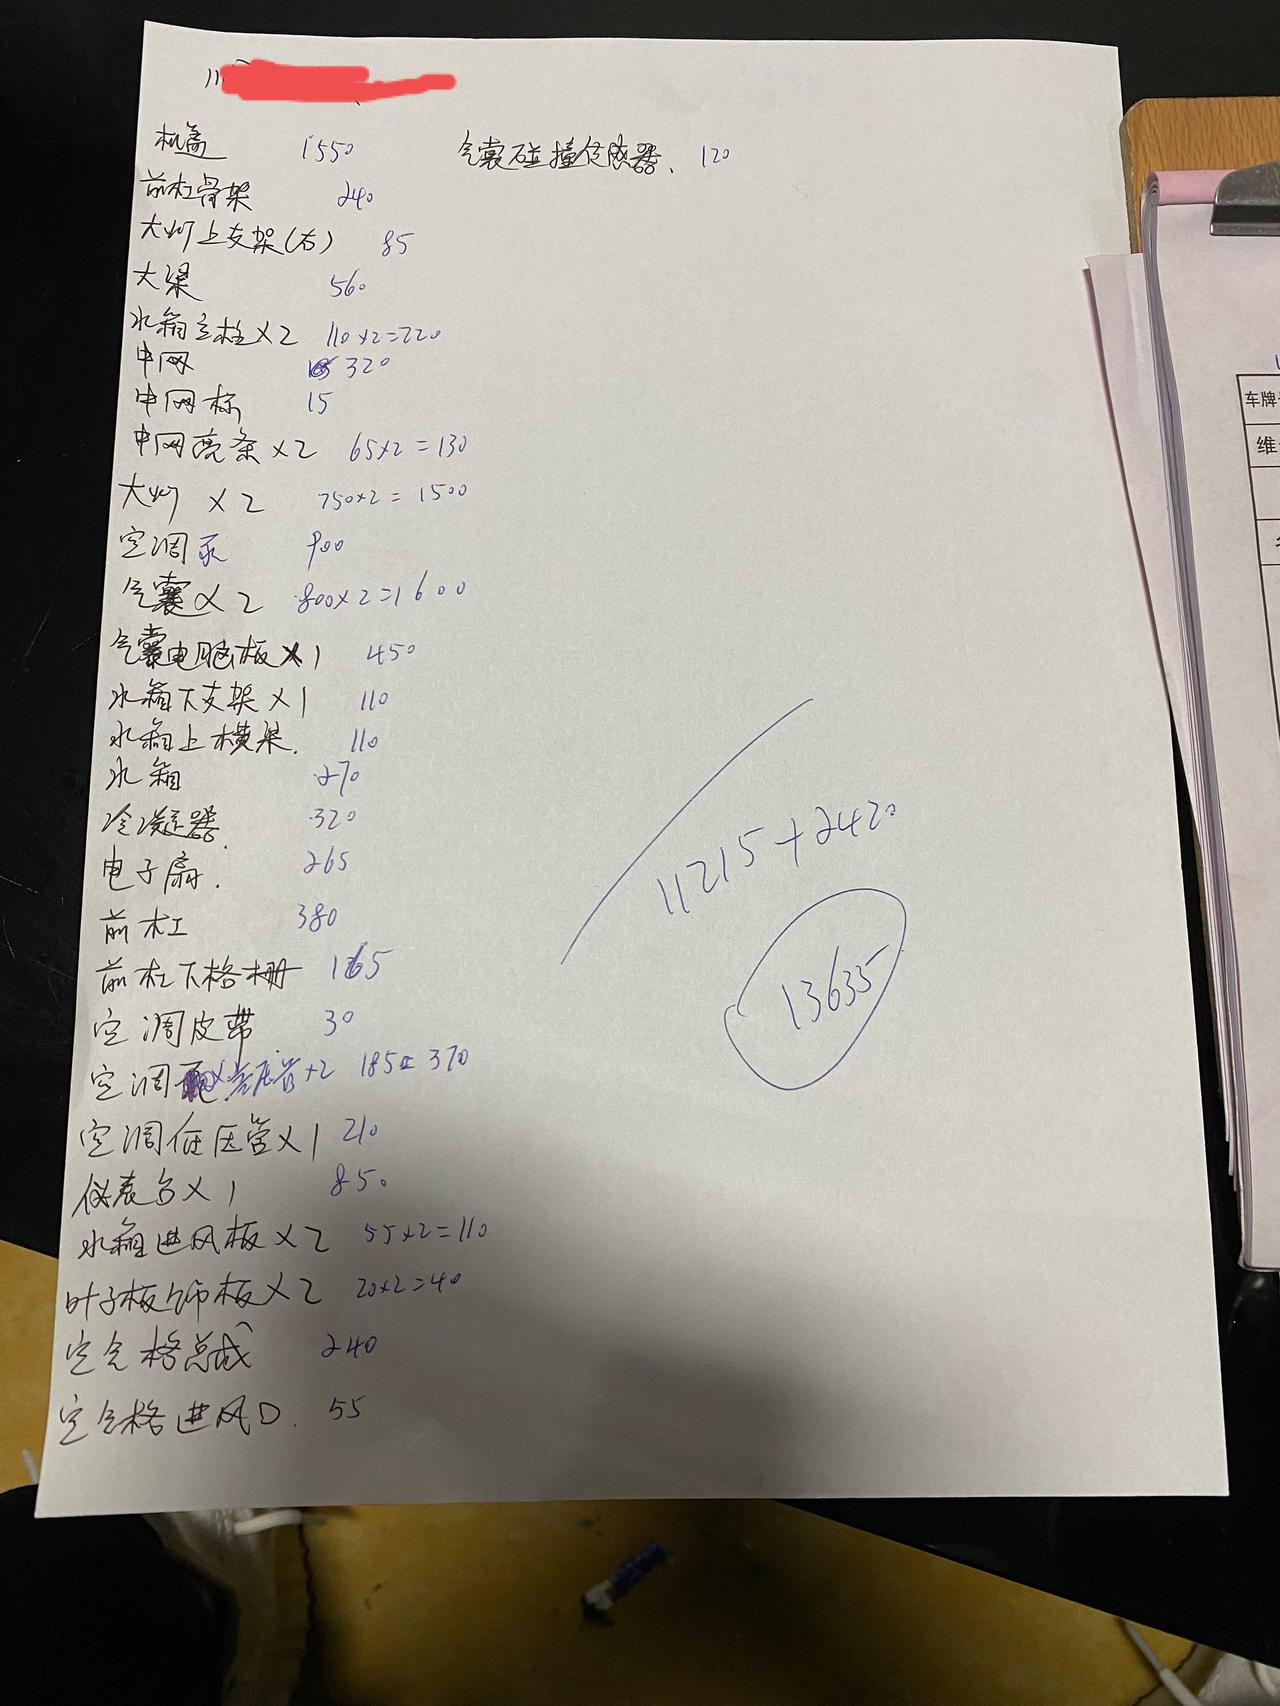 机盖 1550
气囊碰撞传感器、120
前杠骨架 240
大灯上支架(右) 85
大梁 560
水箱立柱×2 110×2=220
中网 320
中网标 15
中网亮条×2 65×2=130
大灯×2 750×2=1500
空调泵 900
气囊×2 800×2=1600
气囊电脑板×1 450
水箱下支架×1 110
水箱上横梁. 110
水箱 270
冷凝器. 320
电子扇. 265
前杠 380
前杠下格栅 165
空调皮带 30
空调 高压管×2 185 370
空调低压管×1 210
仪表台×1 850
水箱进风板×2 55×2=110
叶子板饰板×2 20×2=40
空气格总成 240
空气格进风口. 55
11215+2420
13635
车牌
维